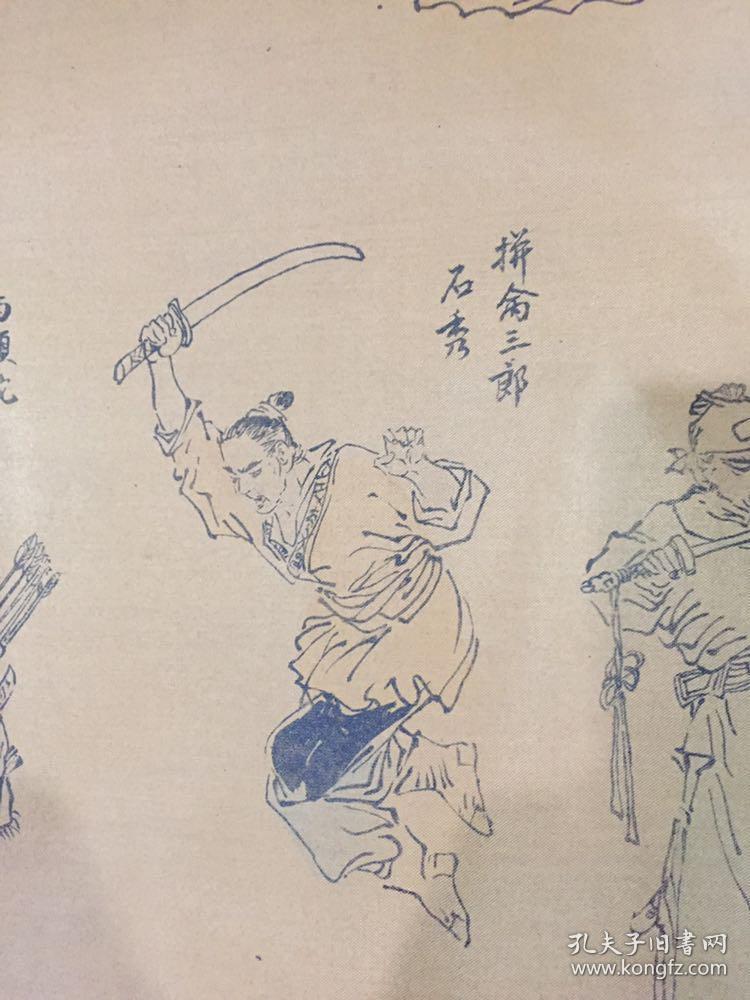 拼命三郎
石秀
孔夫子旧書网
www.kongfz.com